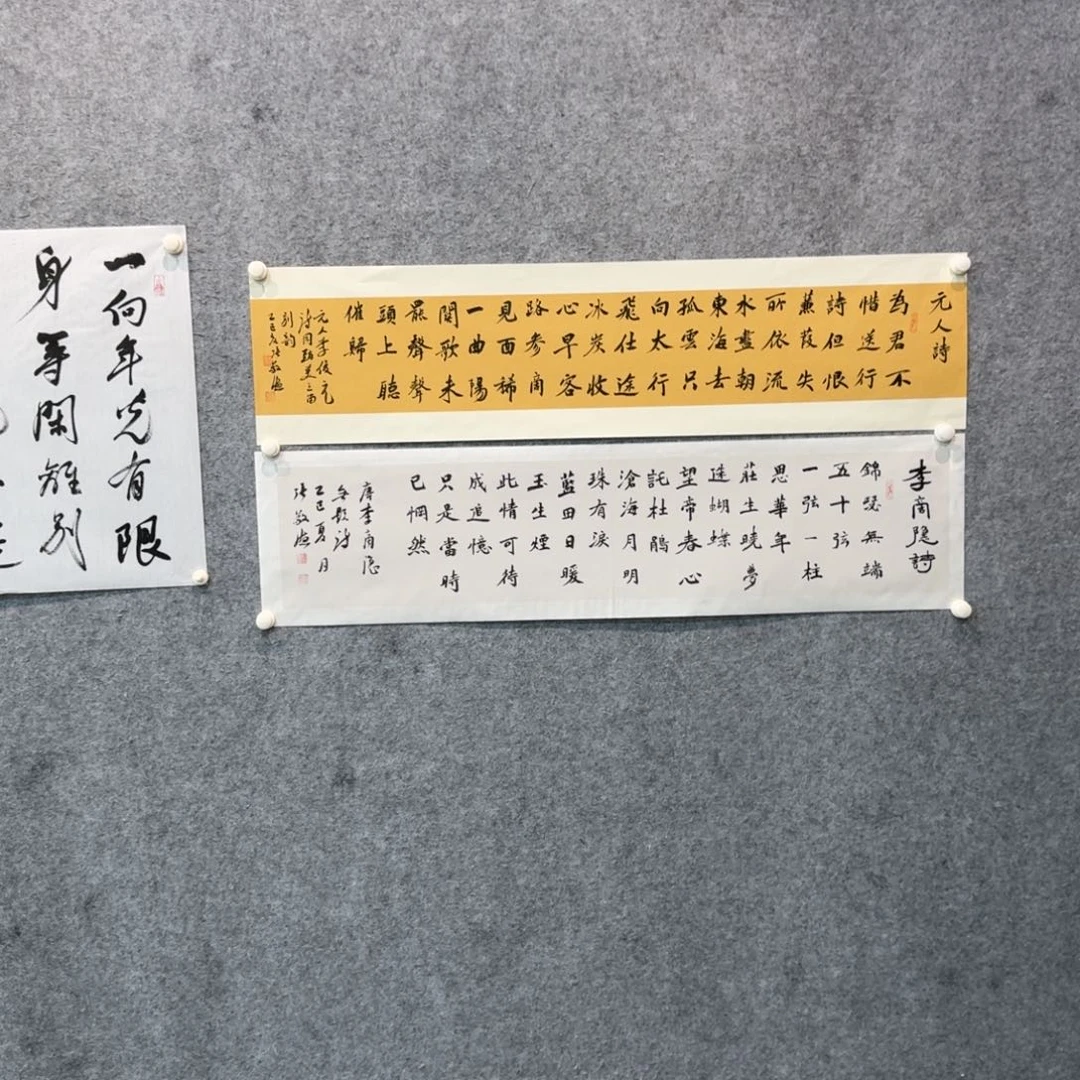 元人詩
為君不
惜送行
詩但恨
蒹葭失
所依流
水盡朝
東海去
孤雲只
向太行
飛仕途
冰炭收
心早客
路参商
見面稀
一曲陽
関歌未
罷聲聲
頭上聽
催歸
元人李俊
別韵
李商隐詩
錦瑟無端
五十弦
一弦一柱
思華年
莊生曉夢
迷蝴蝶
望帝春心
託杜鵑
滄海月明
珠有淚
藍田日暖
玉生煙
此情可待
成追憶
只是當時
已惘然
唐李商隐
無題詩
乙巳夏月
張敬
一向年光有限
身等閑離别